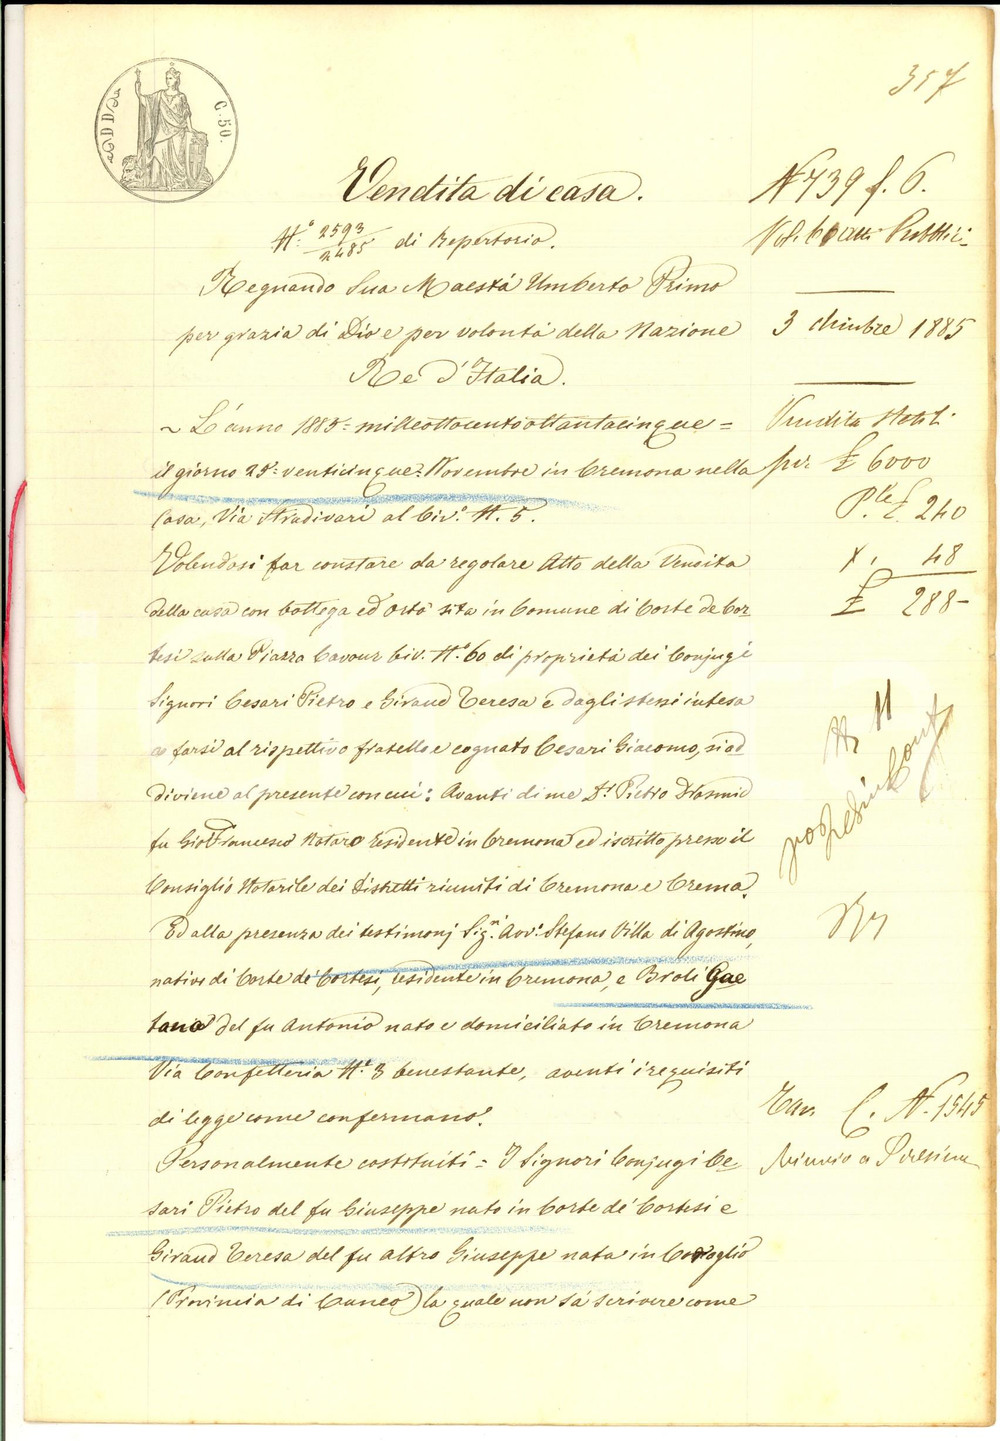 357
C. 50.
Vendita di casa.
N° 739 f. 6.
N.° 2593/2485 di Repertorio.
Vol. 6 Atti Pubblici
Regnando Sua Maestà Umberto Primo
per grazia di Dio e per volontà della Nazione
3 dicembre 1885
Re d'Italia.
~ L'anno 1885 = milleottocentoottantacinque =
Vendita stabili
il giorno 25 = venticinque = Novembre in Cremona nella
per £ 6000
Casa, Via Stradivari al Civ.° N. 5.
P.le £ 240
Volendosi far constare da regolare Atto della Vendita
48
della casa con bottega ed orto sita in Comune di Corte de Cor-
£ 288-
tesi sulla Piazza Cavour Civ. N.° 60 di proprietà dei Conjugi
Signori Cesari Pietro e Giraud Teresa e dagli stessi intesa
a farsi al rispettivo fratello e cognato Cesari Giacomo, si ad
diviene al presente con cui: Avanti di me D.r Pietro
fu Gio Francesco Notaro residente in Cremona ed iscritto presso il
Consiglio Notarile dei Distretti riuniti di Cremona e Crema.
Ed alla presenza dei testimonj Sig.ri Avv.° Stefano Villa di Agostino,
nativo di Corte de' Cortesi, residente in Cremona, e Broli Gae
tano del fu Antonio nato e domiciliato in Cremona
Via Confetteria N.° 3 benestante, aventi i requisiti
di legge come confermano.
C. N. 1545
Personalmente costituiti = I Signori Conjugi Ce-
sari Pietro del fu Giuseppe nato in Corte de' Cortesi e
Giraud Teresa del fu altro Giuseppe nata in
(Provincia di Cuneo) la quale non sa scrivere come